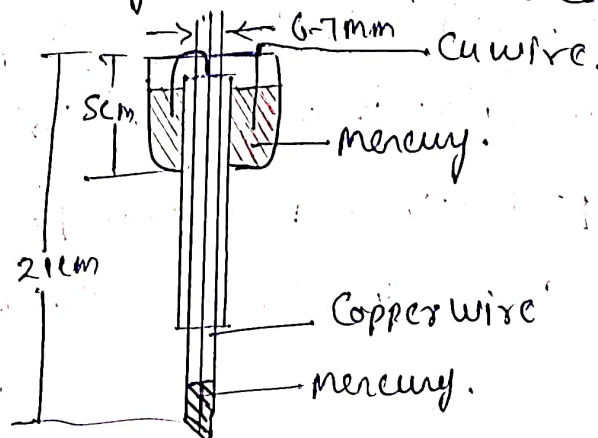 6-7mm
Cu wire.
5cm
mercury.
21cm
Copper wire
mercury.